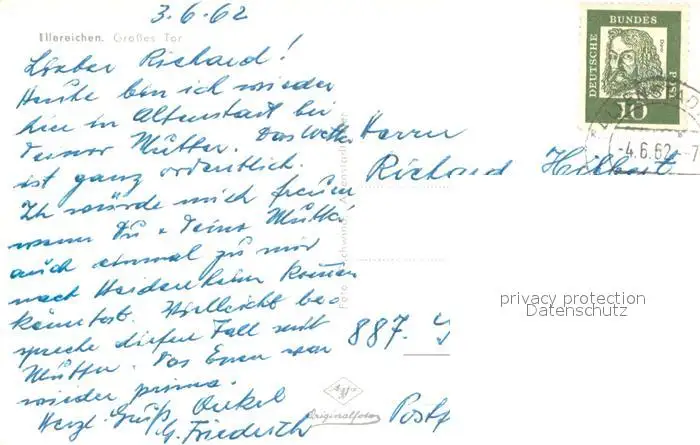 3.6.62
Illereichen. Großes Tor
Lieber Richard!
Heute bin ich wieder
hier in Altenstadt bei
Deiner Mutter. Das Wetter
ist ganz ordentlich.
Ich würde mich freuen
wenn Du + Deine Mutti
auch einmal zu mir
nach Heidenheim kommen
könntest. Vielleicht be-
spreche diesen Fall mit
Mutter. Das Essen war
wieder prima.
Herzl. Grüße Onkel
G. Friederich
DEUTSCHE BUNDES POST
Dürer
10
-4.6.62.-7
Herrn
Richard
privacy protection
Datenschutz
887.
Originalfoto
Postf